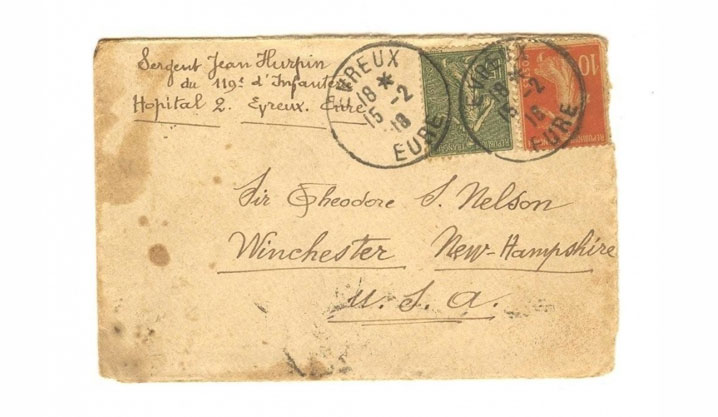 Sergent Jean Hurpin
du 119e d'Infanterie
Hopital 2. Evreux. Eure
EVREUX
18 *
15 -2
18
EURE
EVREUX
18 *
15 -2
18
EURE
10
Sir Theodore S. Nelson
Winchester New-Hampshire
U.S.A.